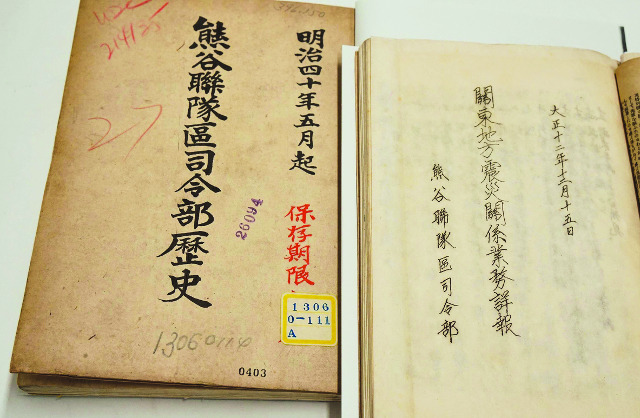 明治四十年五月起
熊谷聯隊區司令部歴史
保存期限
26094
27
1306
0-111
A
13060114
0403
大正十二年十二月十五日
關東地方震災關係業務詳報
熊谷聯隊區司令部